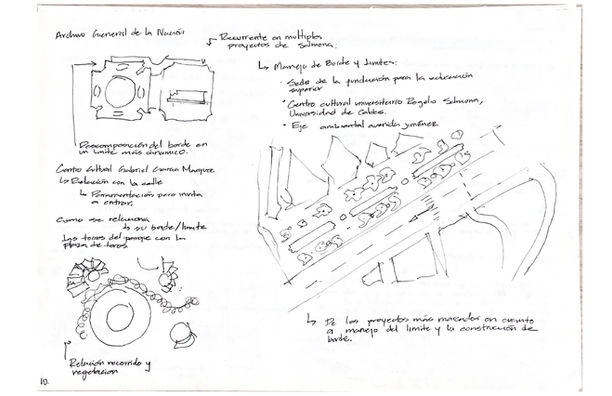 Archivo General de la Nación
Recurrente en multiples
proyectos de Salmona.
Descomposición del borde en
un limite más dinamico.
Centro Cultural Gabriel Garcia Marquez
Relación con la calle
Paramentación para invita
a entrar.
Como se relaciona
su borde/limite
Las torres del parque con la
plaza de toros.
Relación recorrido y
vegetación
10.
Manejo de Borde y limites:
· Sede de la fundación para la educación
superior
· Centro cultural universitario Rogelio Salmona,
Universidad de Caldas.
· Eje ambiental avenida jimenez
De los proyectos más marcados en cuanto
a manejo del limite y la construcción de
borde.